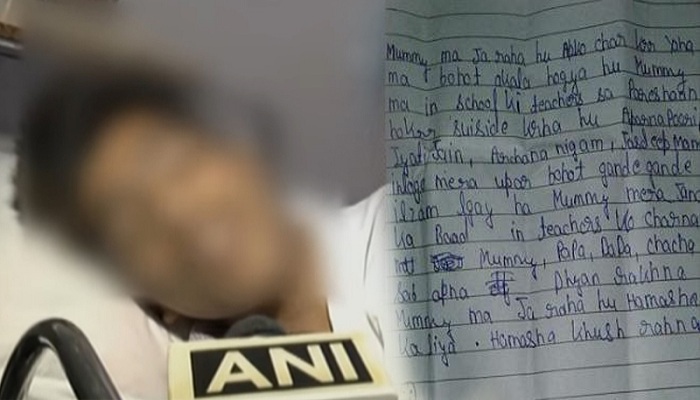 Mummy ma Ja raha hu Apko char kar
ma bohot akala hogya hu Mummy
ma in school ki teachers sa Pareshaan
hokar suiside krha hu Aparna Poori,
Jyoti Jain, Archana nigam, Jasdeep Mam
inloge mera upar bohot gande gande
ilzam lgay ha Mummy mera Jana
Ka Baad in teachers ko charna
mtt Mummy, Papa, DaDa, chacha
Sab apna Dhyan rakhna
Mummy ma Ja raha hu Hamasha
Ka liya. Hamasha khush rahna
ANI